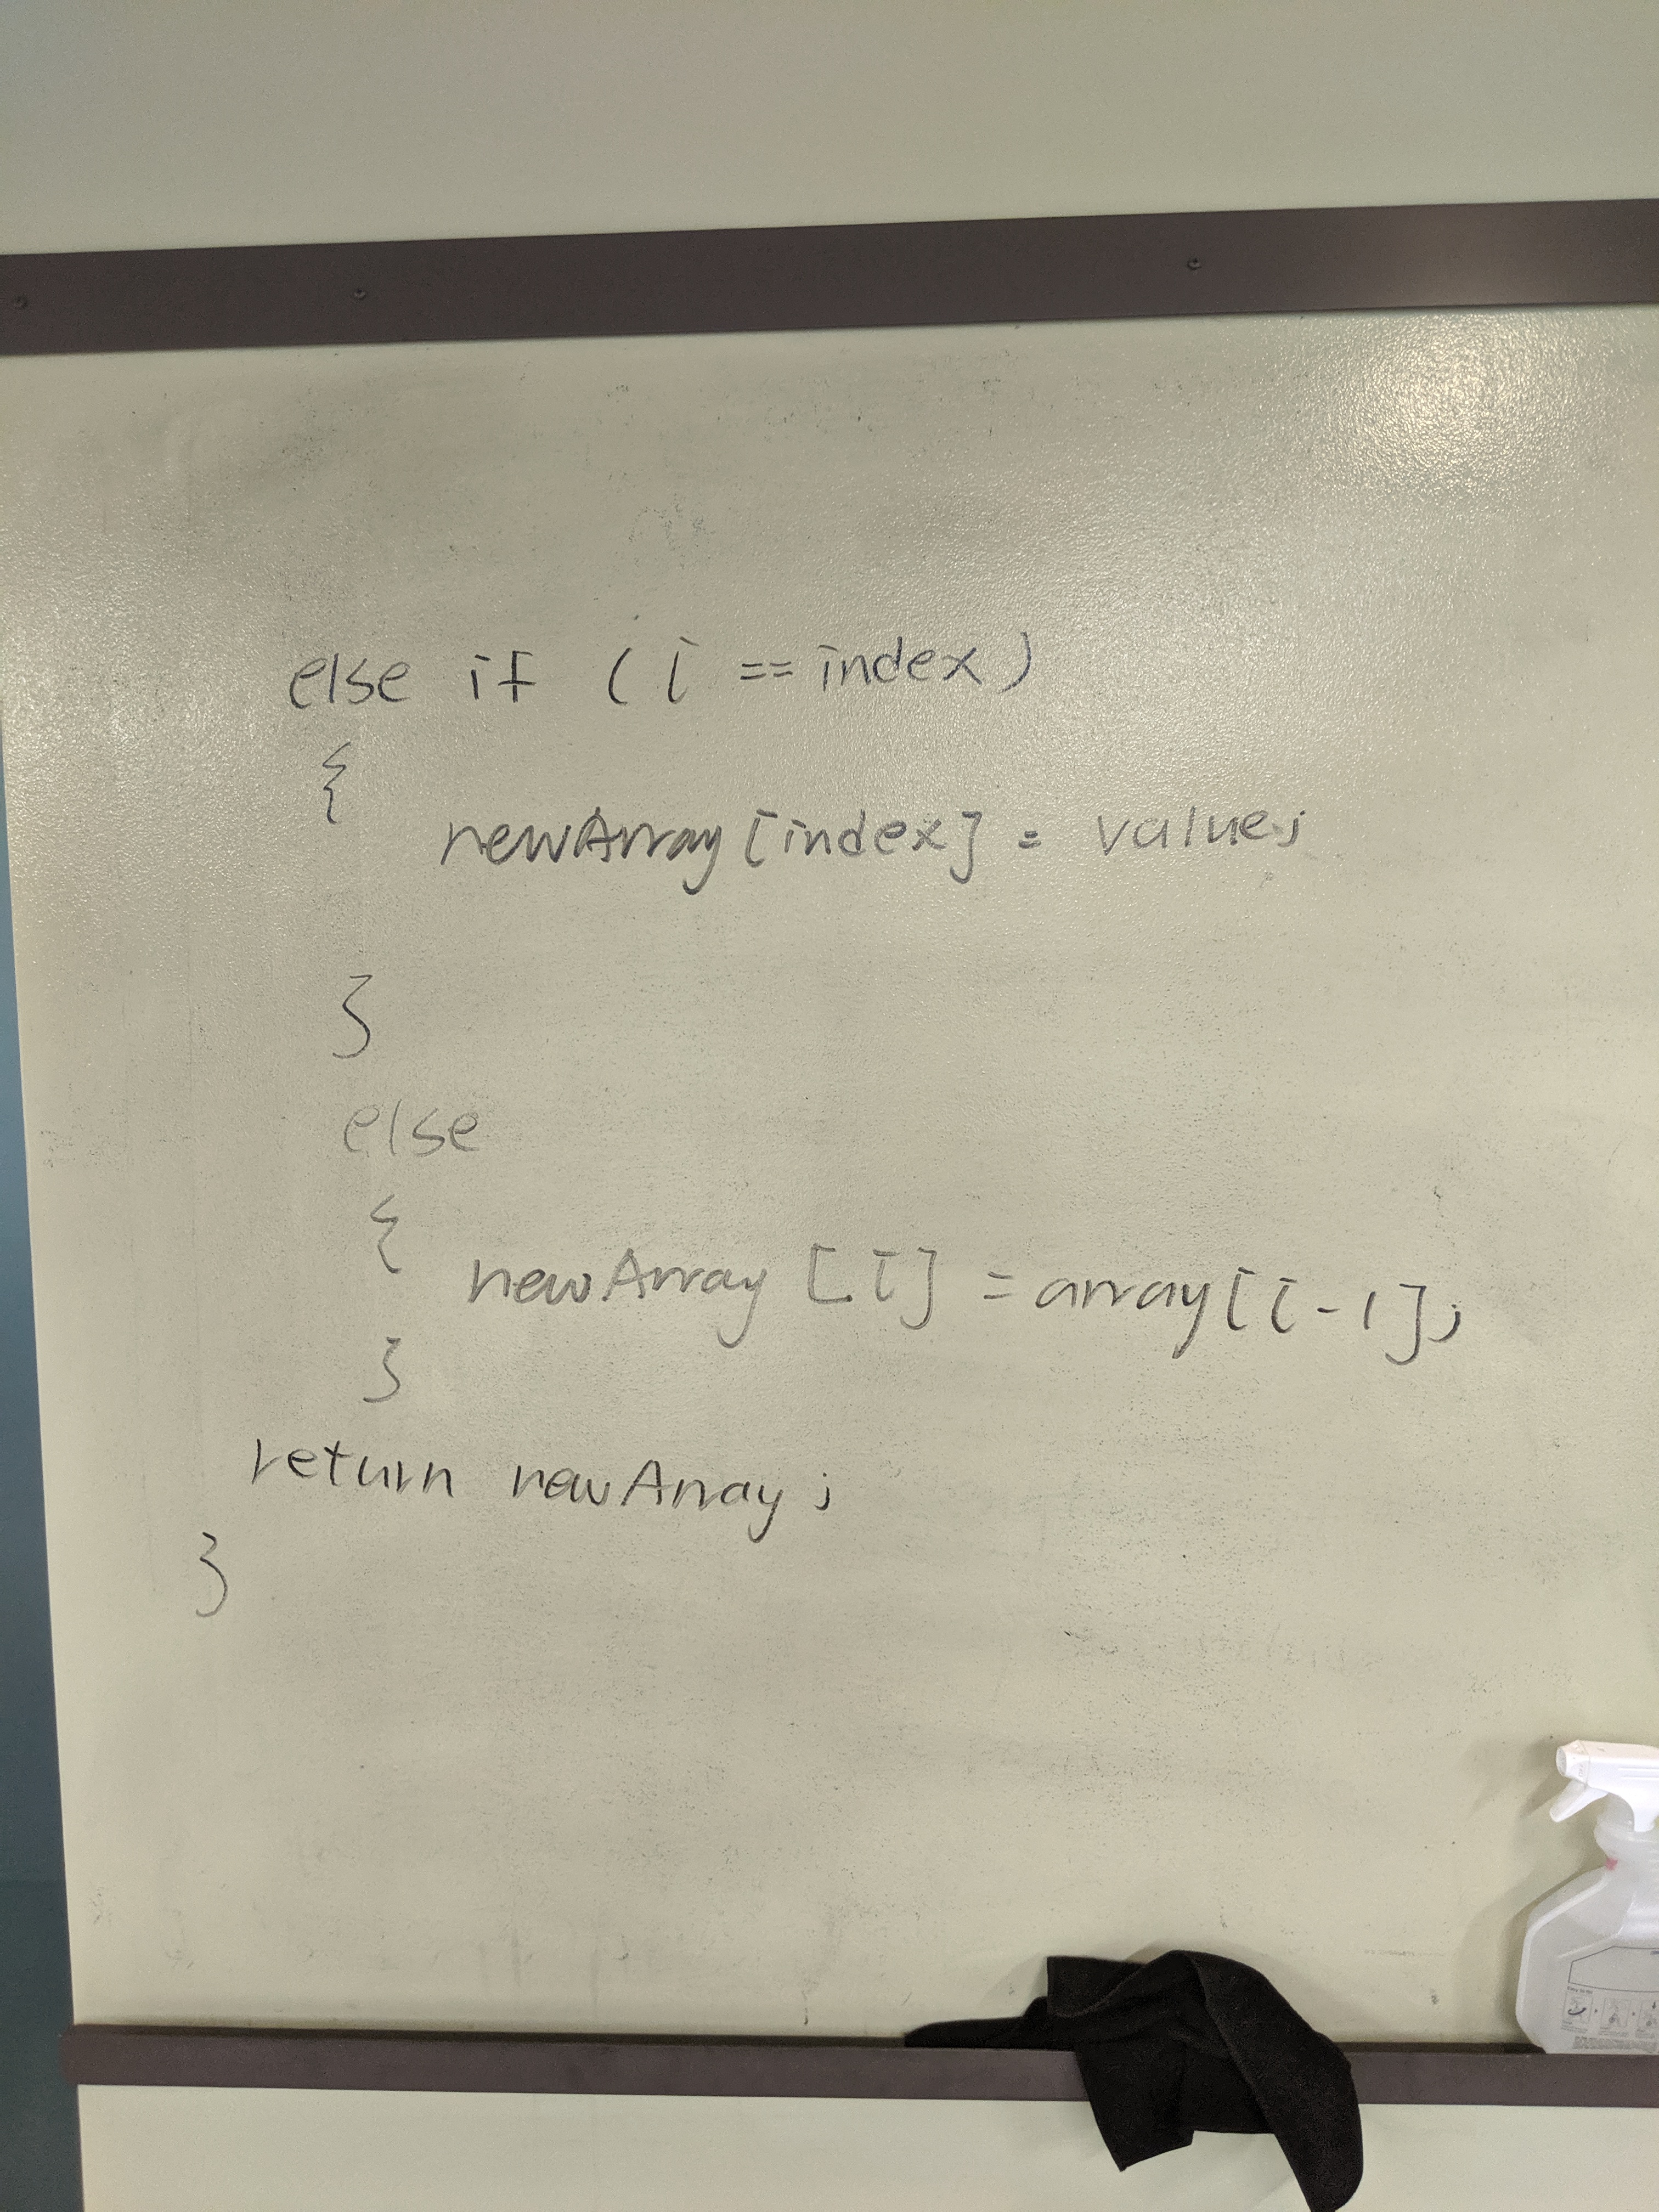 else if (i == index)
{
newArray[index] = value;
}
else
{ newArray [i] = array[i-1];
}
return newArray;
}